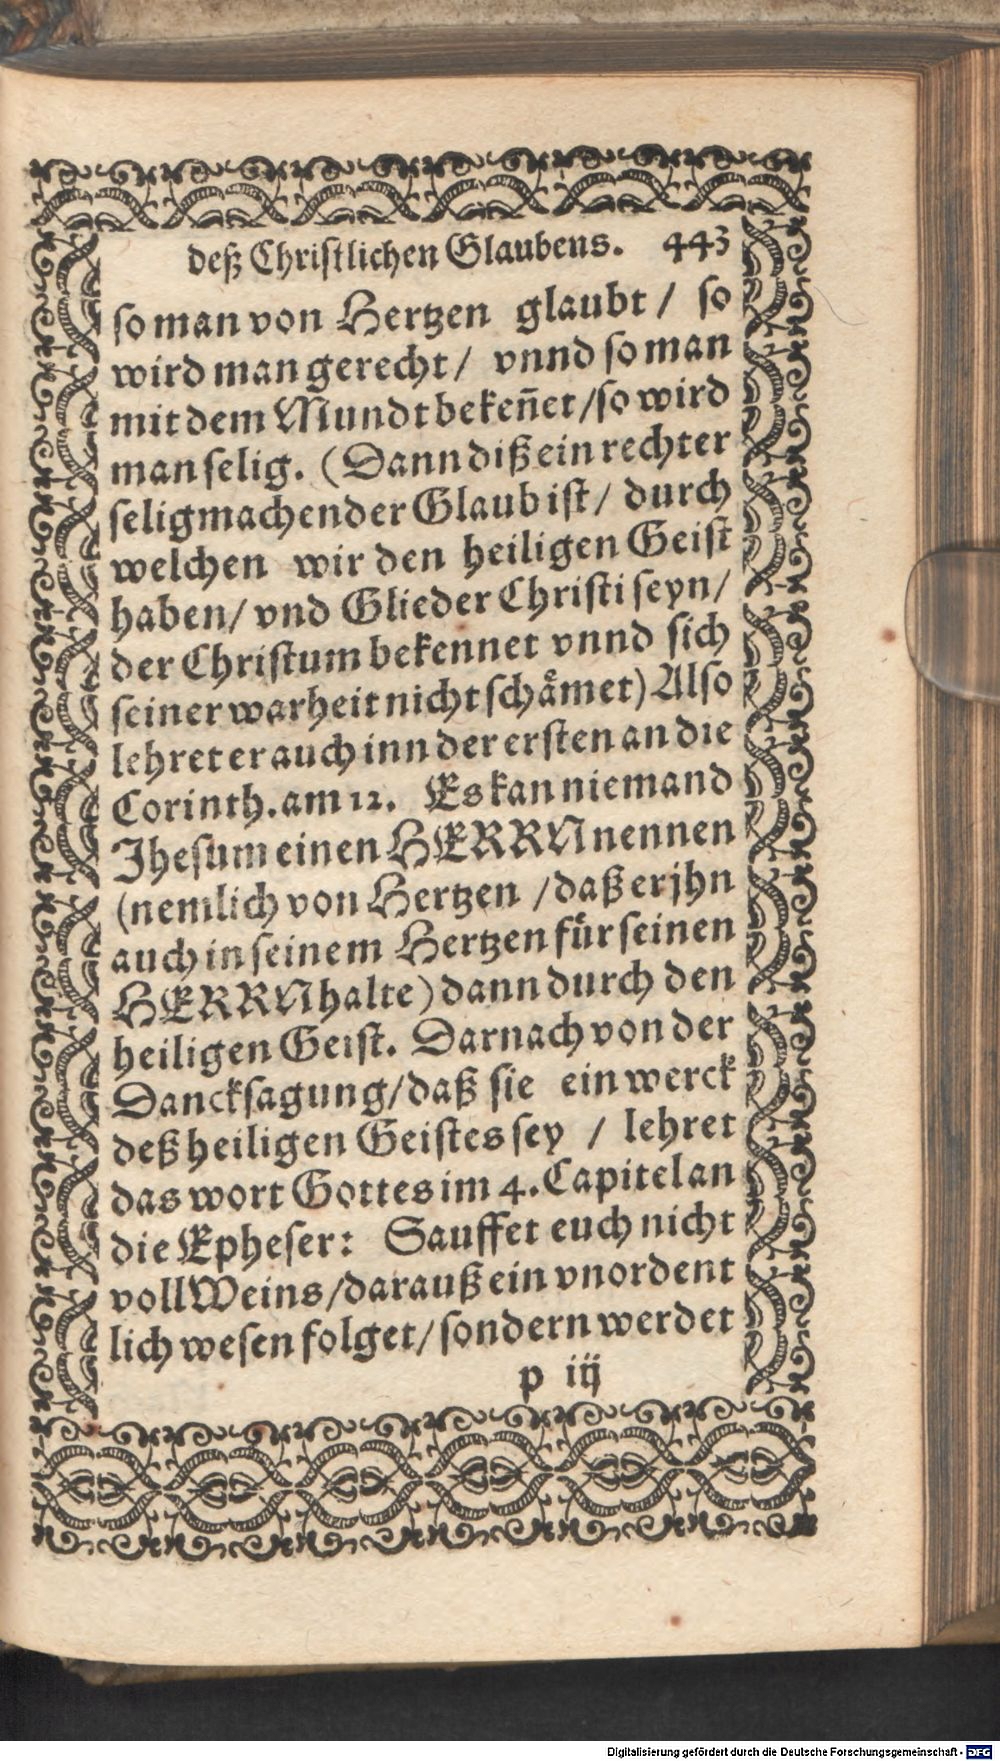 deß Christlichen Glaubens. 443
so man von Hertzen glaubt / so
wird man gerecht / vnnd so man
mit dem Mundt bekeñet / so wird
man selig. (Dann diß ein rechter
seligmachender Glaub ist / durch
welchen wir den heiligen Geist
haben / vnd Glieder Christi seyn /
der Christum bekennet vnnd sich
seiner warheit nicht schaͤmet) Also
lehret er auch inn der ersten an die
Corinth. am 12. Es kan niemand
Jhesum einen HERRN nennen
(nemlich von Hertzen / daß er jhn
auch in seinem Hertzen fuͤr seinen
HERRN halte) dann durch den
heiligen Geist. Darnach von der
Dancksagung / daß sie ein werck
deß heiligen Geistes sey / lehret
das wort Gottes im 4. Capitel an
die Epheser: Sauffet euch nicht
voll Weins / darauß ein vnordent
lich wesen folget / sondern werdet
p iij
Digitalisierung gefördert durch die Deutsche Forschungsgemeinschaft - DFG